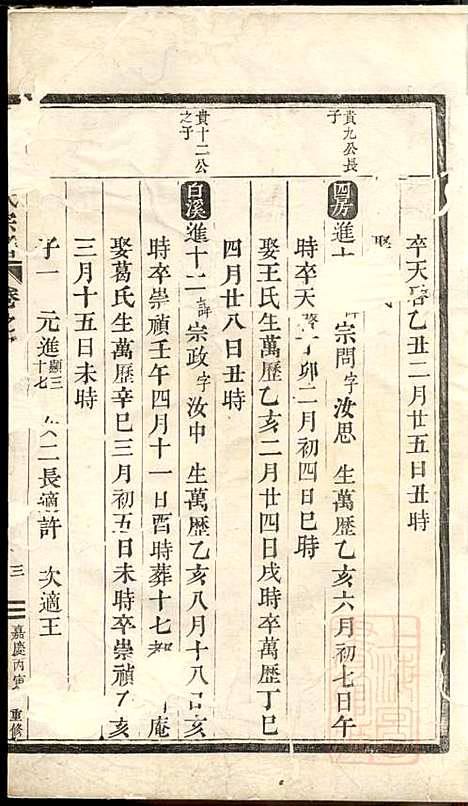 卒天啓乙丑二月廿五日丑時
娶
貴九公長子
四房進十 諱宗問字汝思 生萬歷乙亥六月初七日午
時卒天啓丁卯二月初四日巳時
娶王氏生萬歷乙亥二月廿四日戌時卒萬歷丁巳
四月廿八日丑時
貴十二公之子
白溪進十二諱宗政字汝中 生萬歷乙亥八月十八日亥
時卒崇禎壬午四月十一日酉時葬十七都 庵
娶葛氏生萬歷辛巳三月初五日未時卒崇禎 亥
三月十五日未時
子一 元進顯三十七 女二長適許 次適王
氏宗譜 卷之
三
嘉慶丙寅 重修